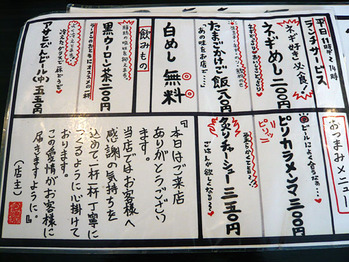 平日
ランチサービス
ネギ好き必食
ネギめし 二〇〇円
たまごかけご飯 二〇〇円
白めし 無料
飲みもの
黒ウーロン茶 二〇〇円
アサヒびんビール
五五〇円
おつまみメニュー
ビールによくあう
ピリカラメンマ 三〇〇円
ピリッ
ネギチャーシュー 三五〇円
本日はご来店
ありがとうござい
ます。
当店ではお客様へ
感謝の気持ちを
込めて一杯一杯丁寧に
つくるように心掛けて
おります。
この愛情がお客様に
届きますように。
(店主)